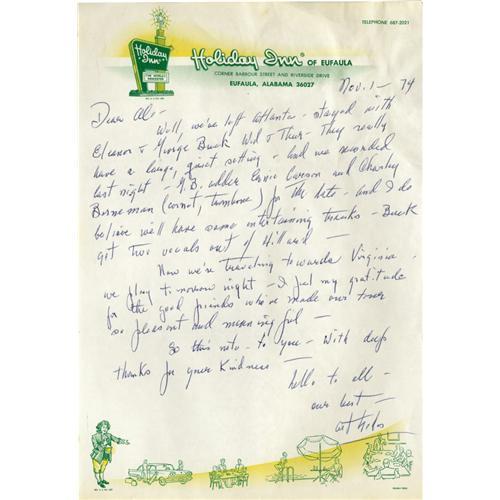 TELEPHONE 687-2021
Holiday Inn
Holiday Inn® OF EUFAULA
CORNER BARBOUR STREET AND RIVERSIDE DRIVE
EUFAULA, ALABAMA 36027
Nov. 1 - 74
Dear Al -
Well, we've left Atlanta - stayed with
Eleanor & George Buck Wed & Thur - They really
have a large, quiet setting - and we recorded
last night - G.B. added Ernie Carson and Charley
Borneman (cornet, trombone) for the date - and I do
believe we'll have some entertaining tracks - Buck
got two vocals out of Hillard -
Now we're traveling towards Virginia -
we play tomorrow night - I feel my gratitude
for the good friends who've made our tour
so pleasant and meaningful -
So this note - to you - With deep
thanks for your kindness -
hello to all -
our best -
Art Hodes